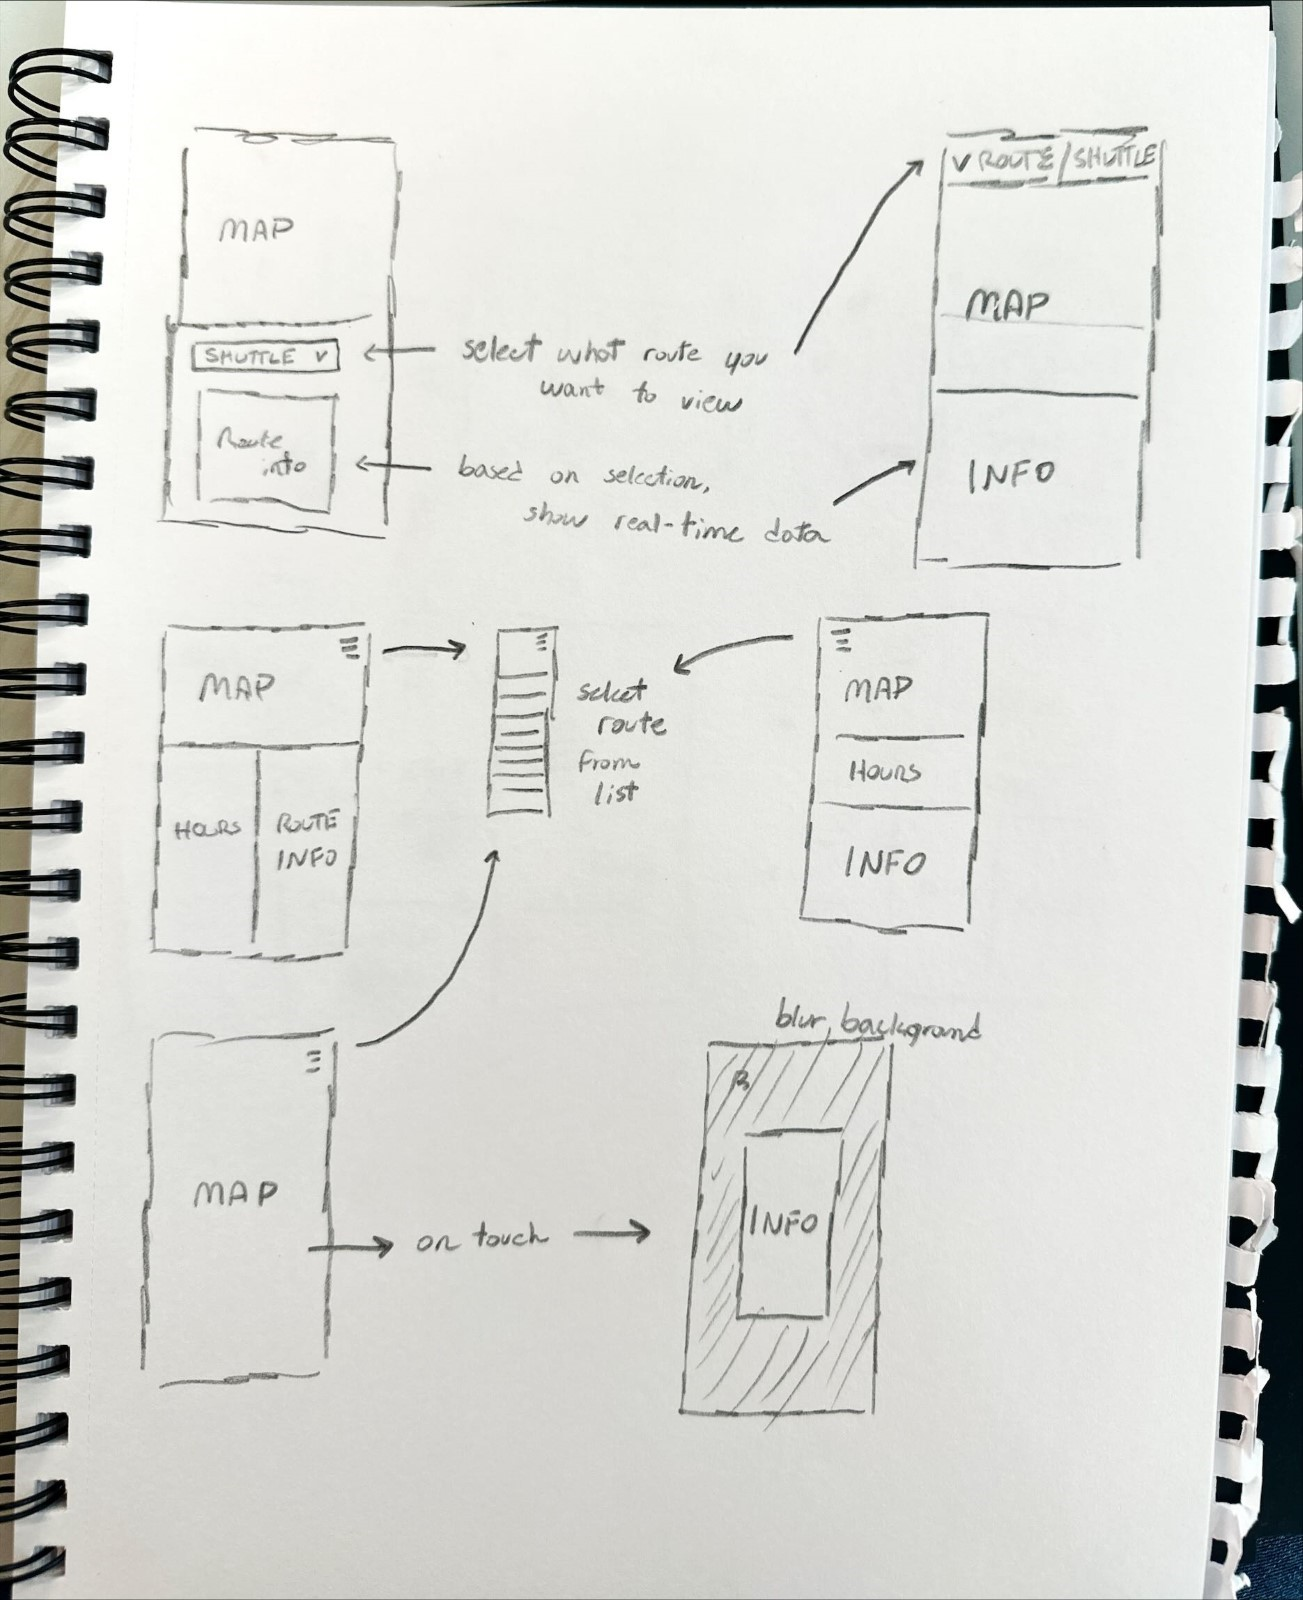 MAP
SHUTTLE V
Route
info
select what route you
want to view
based on selection,
show real-time data
V ROUTE / SHUTTLE
MAP
INFO
MAP
HOURS
ROUTE
INFO
select
route
from
list
MAP
HOURS
INFO
MAP
on touch
blur background
INFO